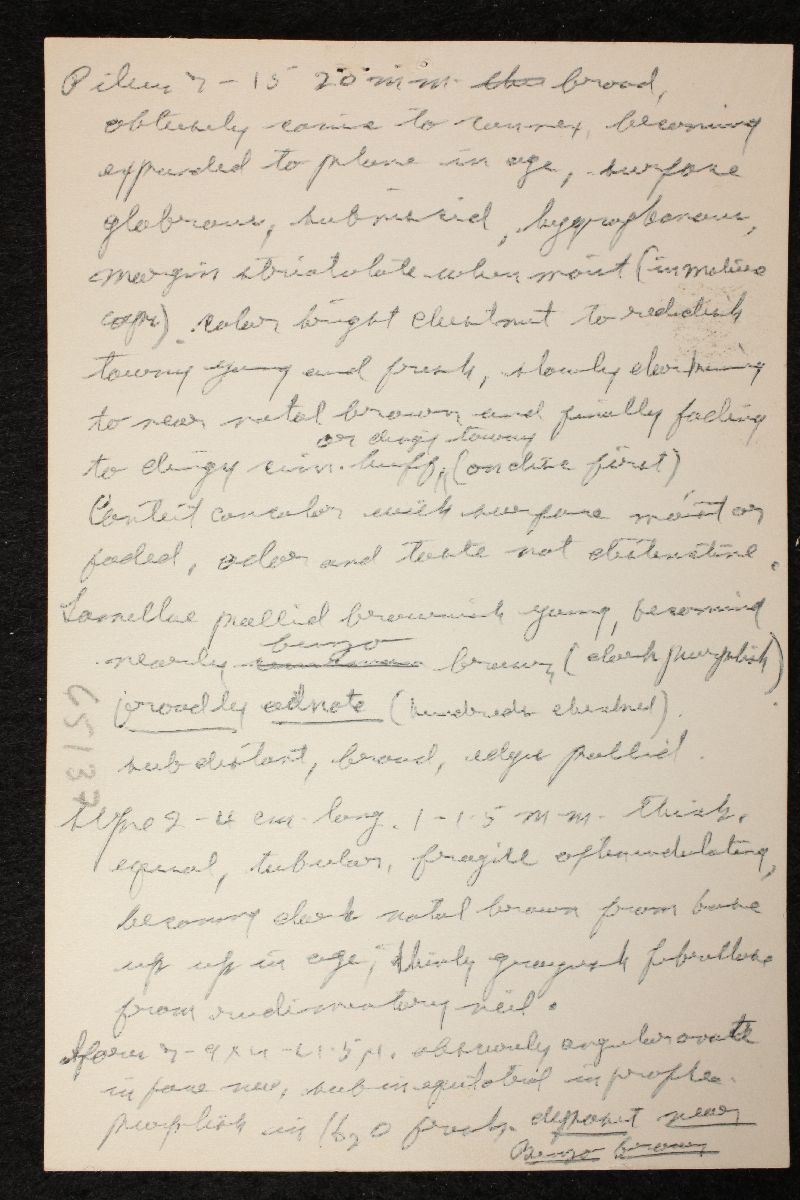 Pileus 7-15 20 mm. broad,
obtusely conic to convex, becoming
expanded to plane in age, surface
glabrous, subviscid, hygrophanous,
margin striatulate when moist (in mature
caps). color bright chestnut to reddish
tawny young and fresh, slowly darkening
to near natal brown and finally fading
or dingy tawny
to dingy cinn. buff, (on disc first)
Context concolor with surface moist or
faded, odor and taste not distinctive.
Lamellae pallid brownish young, becoming
benzo
nearly brown, (dark purplish)
broadly adnate (hundreds checked).
subdistant, broad, edges pallid.
65137
Stipe 2-4 cm long. 1-1.5 mm. thick.
equal, tubular, fragile often undulating,
becoming dark natal brown from base
up up in age, thinly grayish fibrillose
from rudimentary veil.
Spores 7-9 x 4-4.5 µ. obscurely angular ovate
in face view, subinequilateral in profile.
purplish in H2O fresh. deposit near
Benzo brown